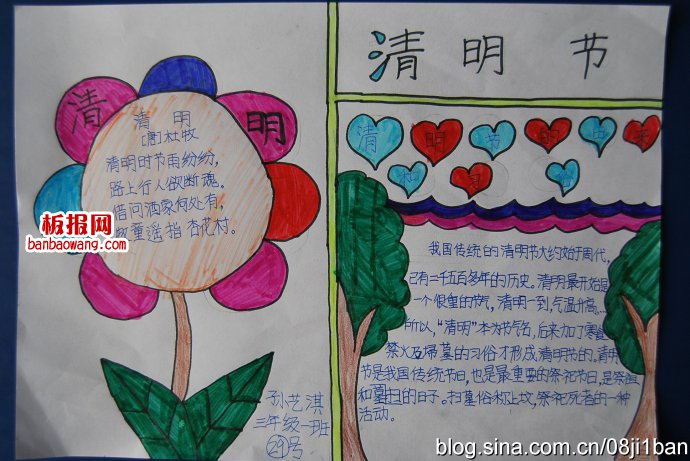 清 明
清 明
[唐]杜牧
清明时节雨纷纷,
路上行人欲断魂。
借问酒家何处有,
童遥指杏花村。
板报网
banbaowang.com
孙艺淇
三年级一班
29号
清 明 节
清 明 节 的
和 习 俗
我国传统的清明节大约始于周代,
已有二千五百多年的历史。清明最开始是
一个很重的节气,清明一到,气温升高,
所以,“清明”本为节气名,后来加了寒食
禁火及埽墓的习俗才形成清明节的。清明
节是我国传统节日,也是最重要的祭祀节日,是祭祖
和墓扫的日子。扫墓俗称上坟,祭祀死者的一种
活动。
blog.sina.com.cn/08ji1ban